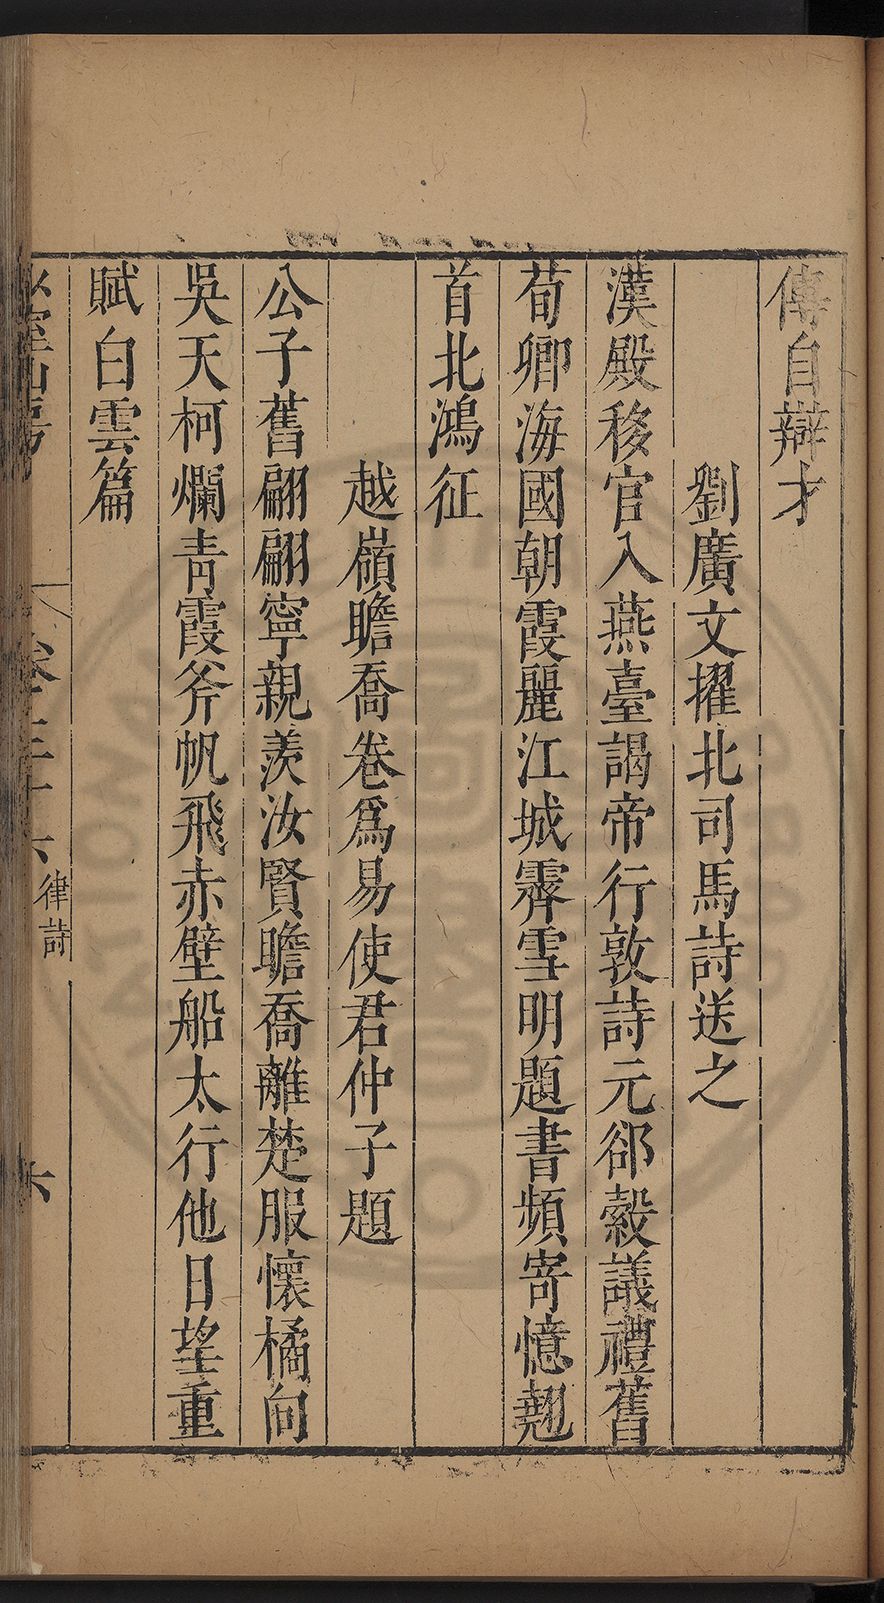 傳自辯才
劉廣文擢北司馬詩送之
漢殿移官入燕臺謁帝行敦詩元郤縠議禮舊
荀卿海國朝霞麗江城霽雪明題書頻寄憶翹
首北鴻征
越嶺瞻喬卷爲易使君仲子題
公子舊翩翩寧親羨汝賢瞻喬離楚服懷橘向
吳天柯爛青霞斧帆飛赤壁船太行他日望重
賦白雲篇
律詩